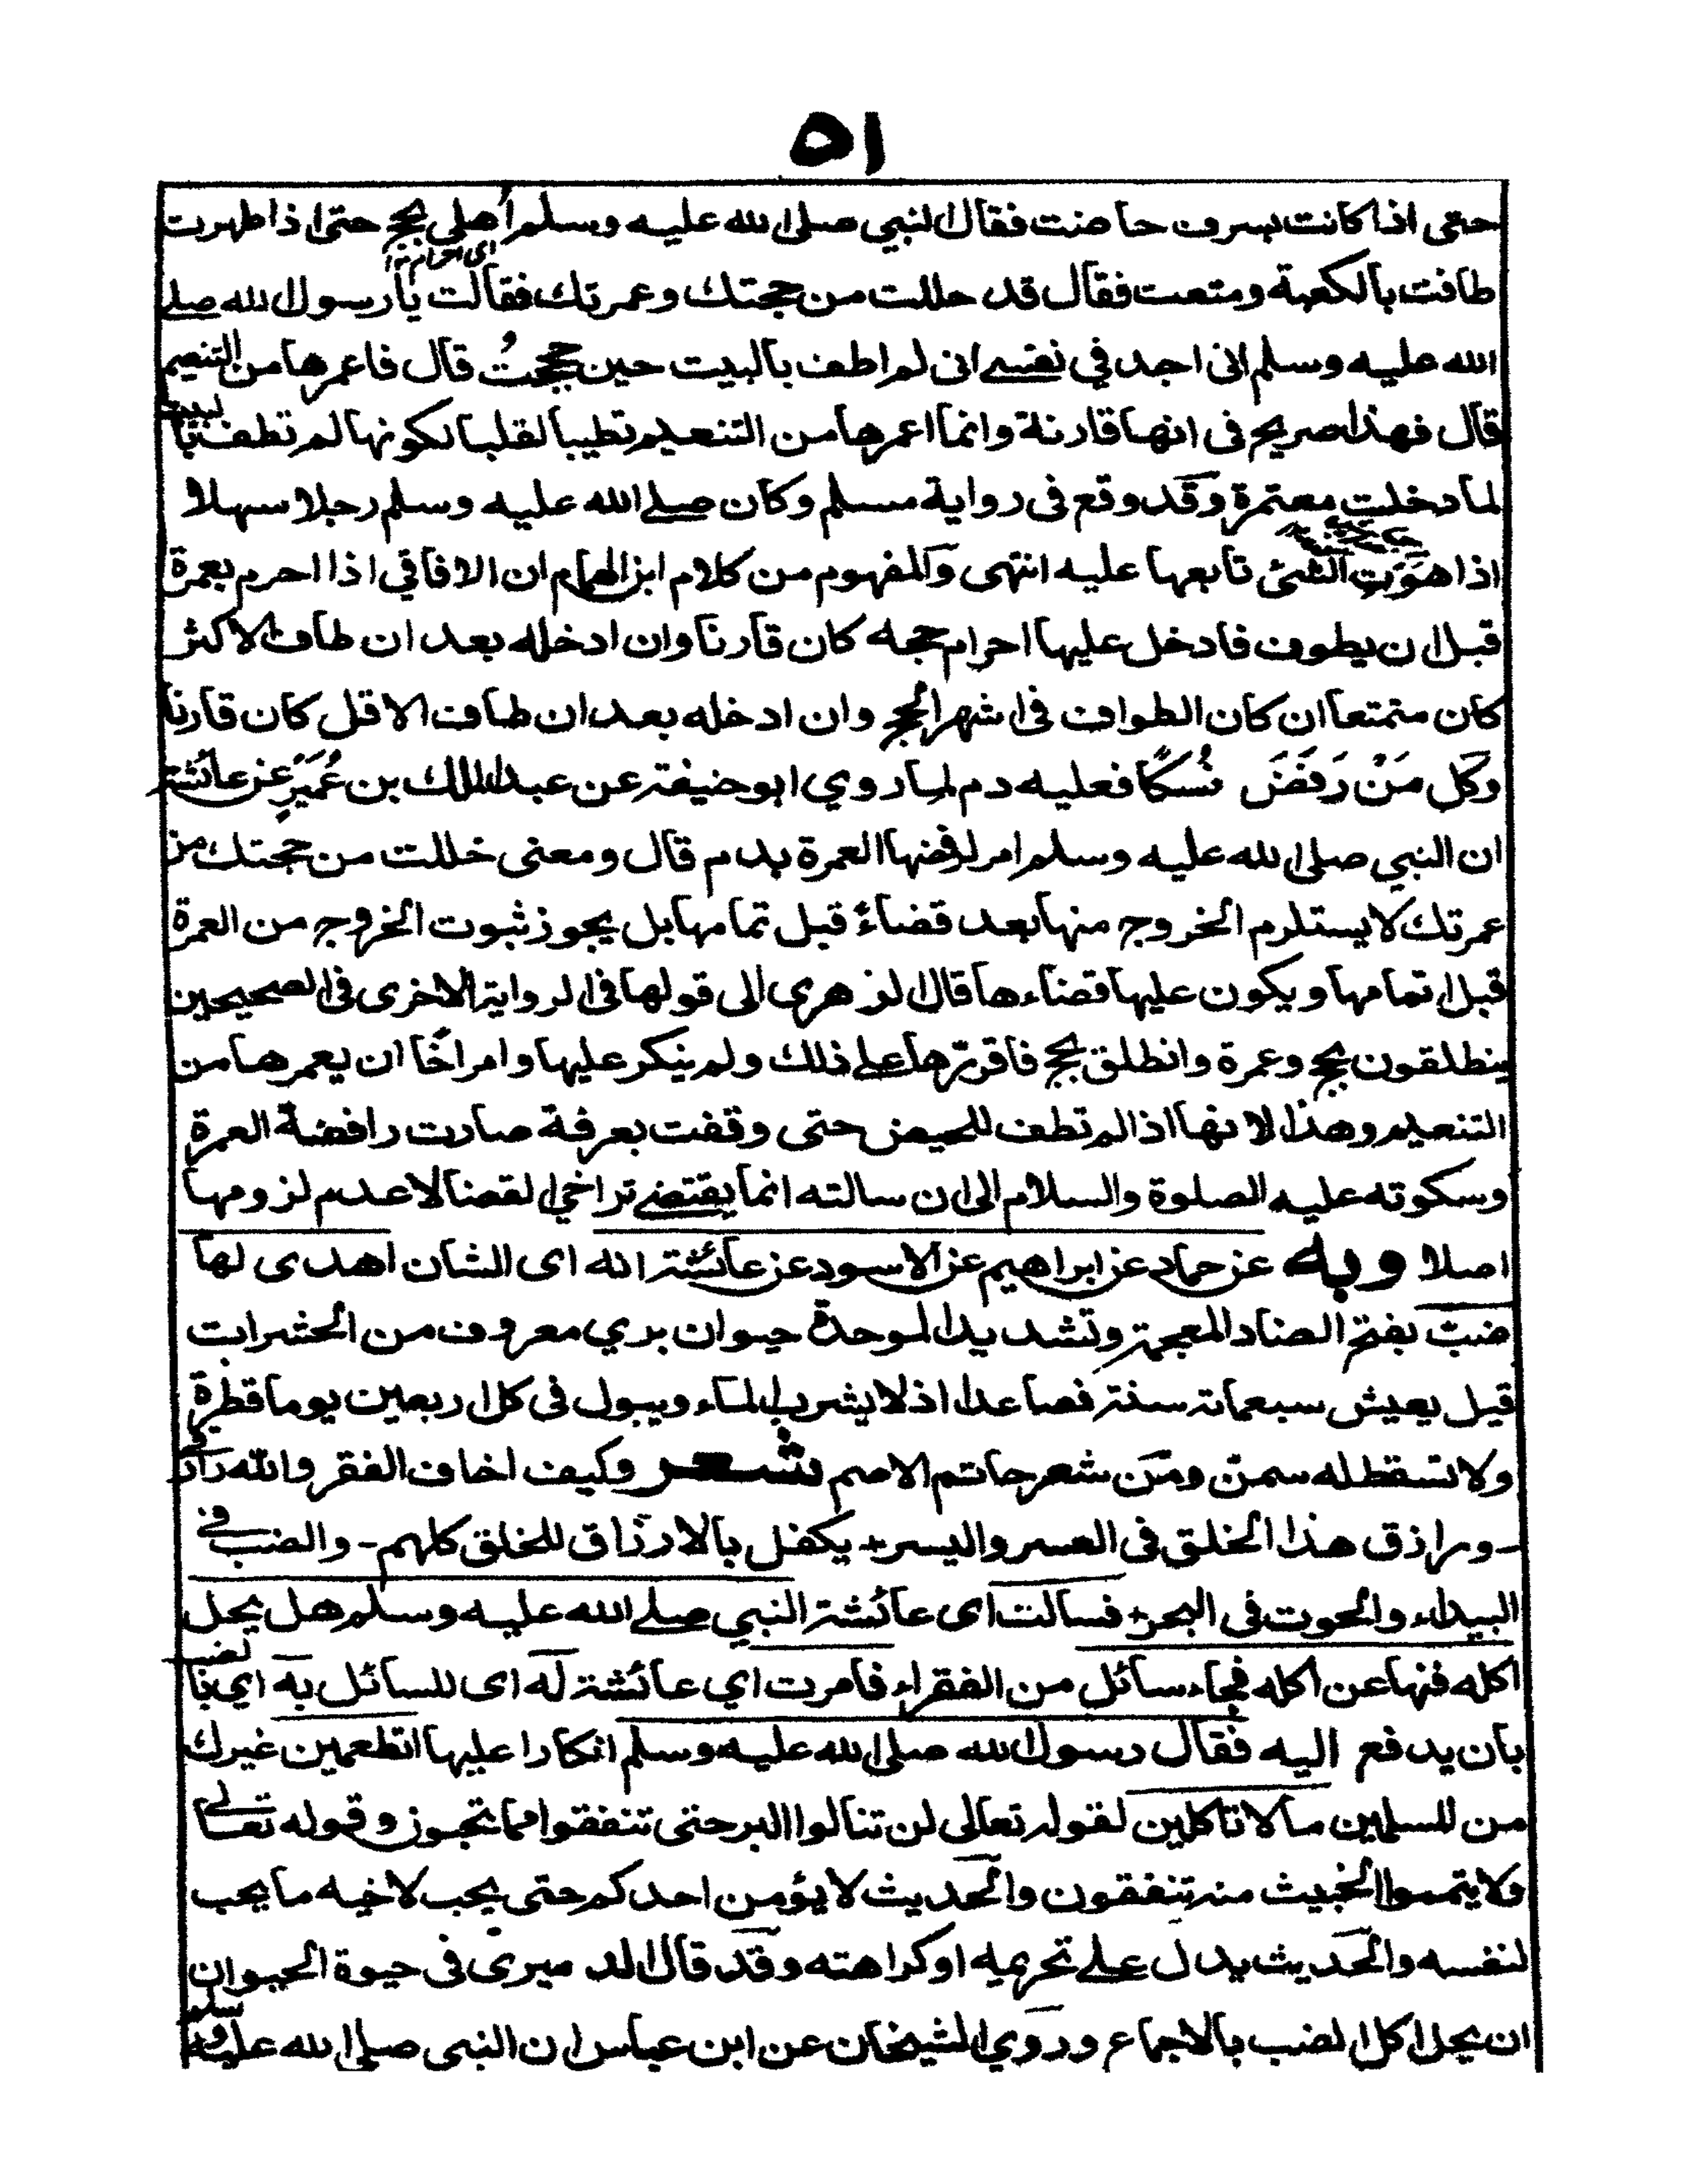 ٥١
حتى اذا كانت بسرف حاضت فقال النبي صلى الله عليه وسلم اُهلى بحج حتى اذا طهرت
اى احرام
طافت بالكعبة ومتعت فقال قد حللت من حجتك وعمرتك فقالت يا رسول الله صلى
الله عليه وسلم انى اجد فى نفسى انى لم اطف بالبيت حين حججتُ قال فاعمرها من التنعيم
قال فهذا صريح فى انها قارنة وانما اعمرها من التنعيم تطيبا لقلبها لكونها لم تطف بالبيت
لما دخلت معتمرة وقد وقع فى رواية مسلم وكان صلى الله عليه وسلم رجلا سهلا
اذا هَوَيَتِ الشئ تابعها عليه انتهى والمفهوم من كلام ابن الهمام ان الافاقي اذا احرم بعمرة
قبل ان يطوف فادخل عليها احرام حجه كان قارنا وان ادخله بعد ان طاف الاكثر
كان متمتعا ان كان الطواف فى اشهر الحج وان ادخله بعد ان طاف الاقل كان قارنا
وكل مَنْ رَفَضَ نُسكًا فعليه دم لما روي ابو حنيفة عن عبد الملك بن عُمَيْرٍ عن عائشة
ان النبي صلى الله عليه وسلم امر لرفضها العمرة بدم قال ومعنى خللت من حجتك من
عمرتك لا يستلرم الخروج منها بعد قضاءً قبل تمامها بل يجوز ثبوت الخروج من العمرة
قبل اتمامها ويكون عليها قضاءها قال الزهرى الى قولها فى الرواية الاخرى فى الصحيحين
ينطلقون بحج وعمرة وانطلق بحج فاقرّها على ذلك ولم ينكر عليها وامر اخًا ان يعمرها من
التنعيم وهذا لا نها اذا لم تطف للحيض حتى وقفت بعرفة صارت رافضة العمرة
وسكوته عليه الصلوة والسلام الى ان سالته انما يقتضى تراخى القضا لا عدم لزومها
اصلا وبه عن حماد عن ابراهيم عن الاسود عن عائشة انه اى الشان اهدى لها
ضبّ بفتح الضاد المعجمة وتشديد الموحدة حيوان بري معروف من الحشرات
قيل يعيش سبعمائة سنة فصاعدا اذ لا يشرب الماء ويبول فى كل اربعين يوما قطرة
ولا تسقط له سمنّ ومن شعر حاتم الاصم شعر وكيف اخاف الفقر والله رازقى
ورازق هذا الخلق فى العسر واليسر + يكفل بالارزاق للخلق كلهم - والضب فى
البيداء والحوت فى البحر + فسالت اى عائشة النبي صلى الله عليه وسلم هل يحل
اكله فنها عن اكله فجاء سائل من الفقراء فامرت اي عائشة له اى للسائل به اي بالضب
بان يدفع اليه فقال رسول الله صلى الله عليه وسلم انكارا عليها اتطعمين غيرك
من المسلمين مالا تاكلين لقوله تعالى لن تنالوا البر حتى تنفقوا مما تحبون وقوله تعالى
ولا يتمموا الخبيث منه تنفقون والحديث لا يؤمن احدكم حتى يحب لاخيه ما يحب
لنفسه والحديث يدل على تحريمه او كراهته وقد قال الد ميرى فى حيوة الحيوان
ان يحل اكل الضب بالاجماع وروي الشيخان عن ابن عباس ان النبى صلى الله عليه وسلم